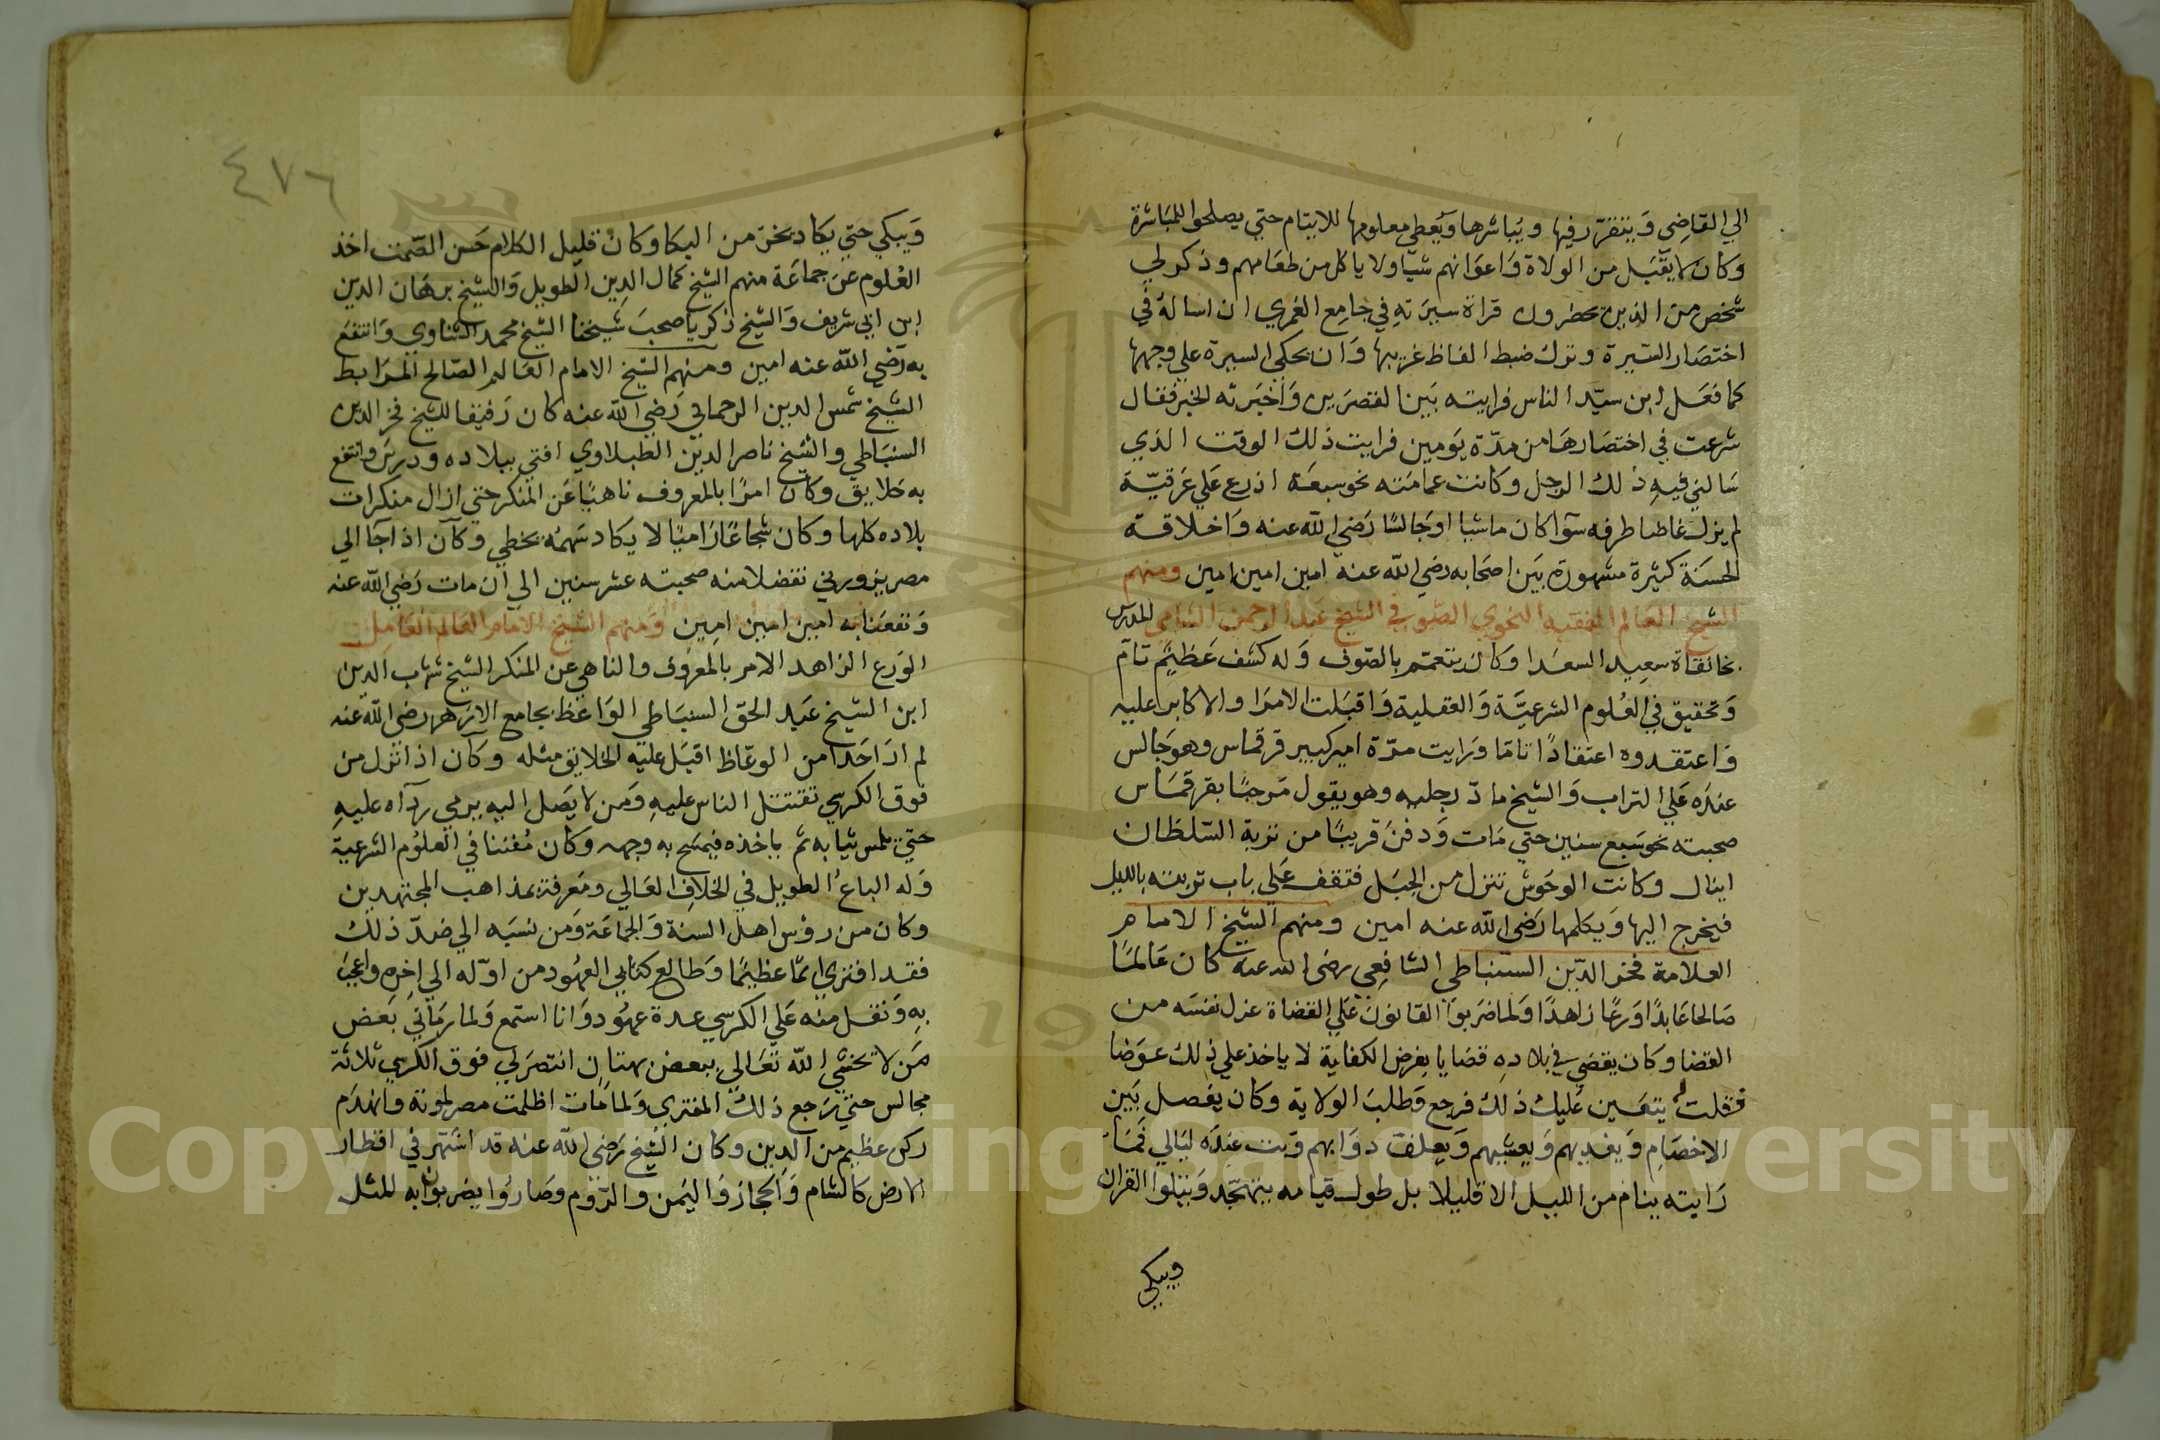 الي القاضي ويتقرر فيها ويباشرها ويعطي معلومها للايتام حتي يصلحوا للمباشرة
وكان لا يقبل من الولاة واعوانهم شيا ولا ياكل من طعامهم وذكر لي
شخص من الذين يحضرون قراة سيرته في جامع الغمري ان اساله في
اختصار السيرة وترك ضبط الفاظ غريبها وان يحكي السيرة علي وجهها
كما فعل ابن سيد الناس فرايته بين القصرين واخبرته الخبر فقال
شرعت في اختصارها من مدة يومين فرايت ذلك الوقت الذي
سالني فيه ذلك الرجل وكانت عمامته نحو سبعة اذرع علي عرقية
لم يزل غاضا طرفه سوا كان ماشيا او جالسا رضي الله عنه واخلاقه
الحسنة كثيرة مشهورة بين اصحابه رضي الله عنه امين امين امين ومنهم
الشيخ العالم الفقيه النحوي الصوفي الشيخ عبد الرحمن الشامي المدرس
بخانقاة سعيد السعدا وكان يتعمم بالصوف وله كشف عظيم تام
وتحقيق في العلوم الشرعية والعقلية واقبلت الامرا والاكابر عليه
واعتقدوه اعتقادا تاما ورايت مرة امير كبير قرقماس وهو جالس
عنده علي التراب والشيخ ماد رجليه وهو يقول مرحبا بقرقماس
صحبته نحو سبع سنين حتي مات ودفن قريبا من تربة السلطان
اينال وكانت الوحوش تنزل من الجبل فتقف علي باب تربته بالليل
فيخرج اليها ويكلمها رضي الله عنه امين ومنهم الشيخ الامام
العلامة فخر الدين السنباطي الشافعي رضي الله عنه كان عالما
صالحا عابدا ورعا زاهدا ولما ضربوا القانون علي القضاة عزل نفسه من
القضا وكان يقضي في بلاده قضايا بفرض الكفاية لا ياخذ علي ذلك عوضا
فقلت له يتعين عليك ذلك فرجع وطلب الولاية وكان يفصل بين
الاخصام ويغديهم ويعشيهم ويعلف دوابهم وبت عنده ليالي فما
رايته ينام من الليل الا قليلا بل طول قيامه يتهجد ويتلوا القران
ويبكي
٤٧٦
ويبكي حتي يكاد يخر من البكا وكان قليل الكلام حسن الصمت اخذ
العلوم عن جماعة منهم الشيخ كمال الدين الطويل والشيخ برهان الدين
ابن ابي شريف والشيخ زكريا صحب شيخنا الشيخ محمد الشناوي وانتفع
به رضي الله عنه امين ومنهم الشيخ الامام العالم الصالح المرابط
الشيخ شمس الدين الرحماني رضي الله عنه كان رفيقا للشيخ فخر الدين
السنباطي والشيخ ناصر الدين الطبلاوي افتي ببلاده ودرس وانتفع
به خلايق وكان امرا بالمعروف ناهيا عن المنكر حتي ازال منكرات
بلاده كلها وكان شجاعا راميا لا يكاد سهمه يخطي وكان اذا جا الي
مصر يزورني تفضلا منه صحبته عشر سنين الي ان مات رضي الله عنه
ونفعنا به امين امين امين ومنهم الشيخ الامام العالم العامل
الورع الزاهد الامر بالمعروف والناهي عن المنكر الشيخ شهاب الدين
ابن الشيخ عبد الحق السنباطي الواعظ بجامع الازهر رضي الله عنه
لم ار احدا من الوعاظ اقبل عليه الخلايق مثله وكان اذا نزل من
فوق الكرسي تقتتل الناس عليه ومن لا يصل اليه يرمي رداه عليه
حتي يلمس ثيابه ثم ياخذه فيمسح به وجهه وكان مفننا في العلوم الشرعية
وله الباع الطويل في الخلاف العالي ومعرفة بمذاهب المجتهدين
وكان من رؤس اهل السنة والجماعة ومن نسبه الي ضد ذلك
فقد افتري اثما عظيما وطالع كتابي العهود من اوله الي اخره واعجب
به ونقل منه علي الكرسي عدة عهود وانا استمع ولما رماني بعض
من لا يخشي الله تعالي ببعض بهتان انتصر لي فوق الكرسي ثلاثة
مجالس حتي رجع ذلك المفتري ولما مات اظلمت مصر لموته وانهدم
ركن عظيم من الدين وكان الشيخ رضي الله عنه قد اشتهر في اقطار
الارض كالشام والحجاز واليمن والروم وصاروا يضربون به المثل
Copyright © King Saud University